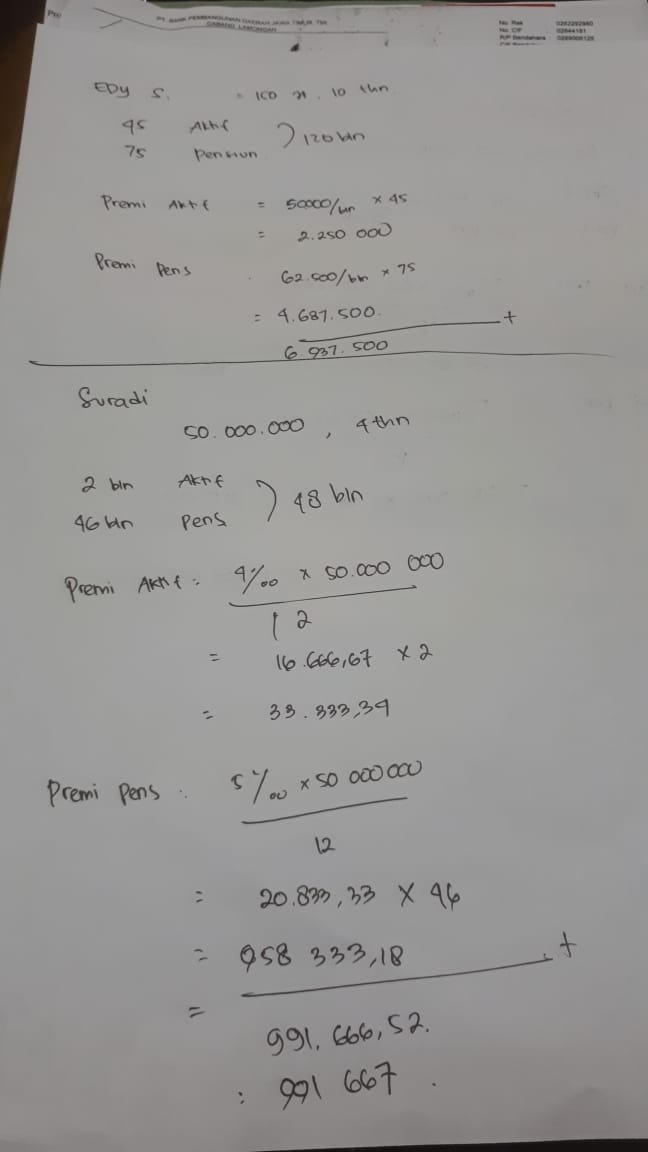 PT. BANK PEMBANGUNAN DAERAH JAWA TIMUR, Tbk
CABANG LAMONGAN
No. Rek 0262292980
No. CIF 02644161
EDy S. = 150 jt . 10 thn
45 Aktif
75 Pensiun ) 120 bln
Premi Aktif = 50000/bln x 45
= 2.250 000
Premi Pens 62.500/bln x 75
= 4.687.500. +
6.937.500
Suradi
50.000.000 , 4 thn
2 bln Aktif
46 bln Pens ) 48 bln
Premi Aktif : 4‰ x 50.000 000
12
= 16.666,67 x 2
= 33.333,34
Premi Pens : 5‰ x 50 000 000
12
= 20.833,33 x 46
= 958 333,18 +
= 991.666,52.
: 991 667 .